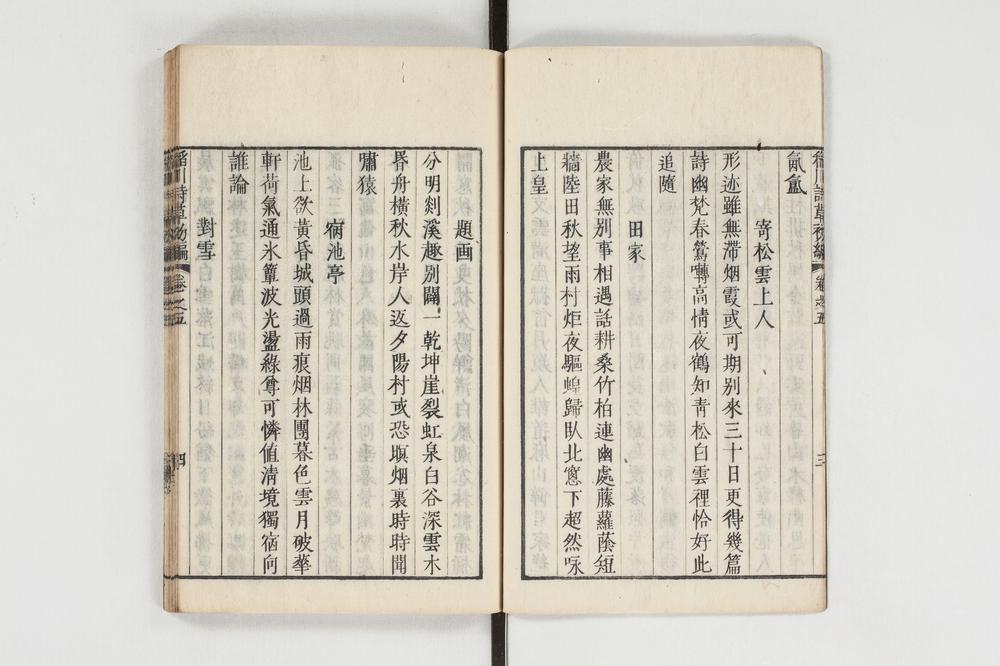 氤氳
寄松雲上人
形迹雖無滯烟霞或可期別來三十日更得幾篇
詩幽梵春鶯囀高情夜鶴知靑松白雲裡恰好此
追隨
田家
農家無別事相遇話耕桑竹柏連幽處藤蘿蔭短
牆陸田秋望雨村炬夜驅蝗歸臥北窻下超然咏
上皇
題画
分明剡溪趣別闢一乾坤崖裂虹泉白谷深雲木
昏舟橫秋水岸人返夕陽村或恐塡烟裏時時聞
嘯猿
宿池亭
池上欲黃昏城頭過雨痕烟林團暮色雲月破華
軒荷氣通氷簟波光盪綠尊可憐値淸境獨宿向
誰論
對雪
詩草初編 卷之五 四